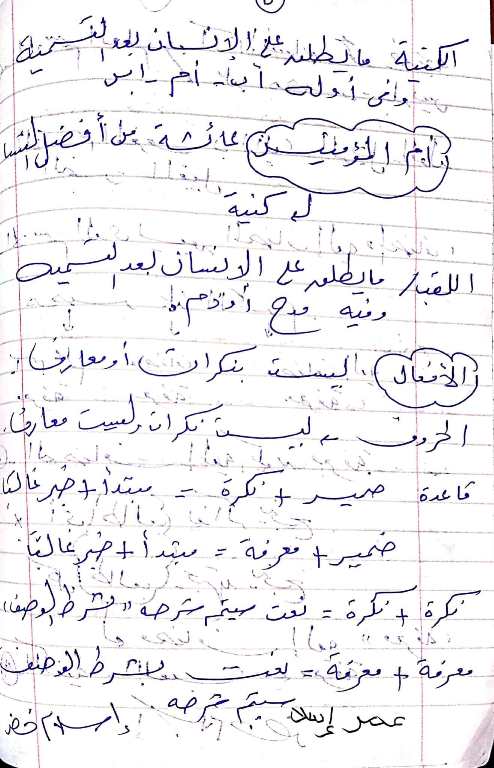 الكنية ما يطلق على الإنسان بعد التسمية
وفي أوله أب - أم - ابن
أم المؤمنين عائشة من أفضل النسا
كنية
اللقب/ ما يطلق على الإنسان بعد التسمية
وفيه مدح أو ذم.
الأفعال: ليست بنكرات أو معارف
الحروف ليست نكرات وليست معارف
قاعدة ضمير + نكرة = مبتدأ + خبر غالبًا
ضمير + معرفة = مبتدأ + خبر غالبًا
نكرة + نكرة = نعت سيتم شرحه "بشرط الوصف"
معرفة + معرفة = نعت بشرط الوصف
سيتم شرحه
عمر إسلا